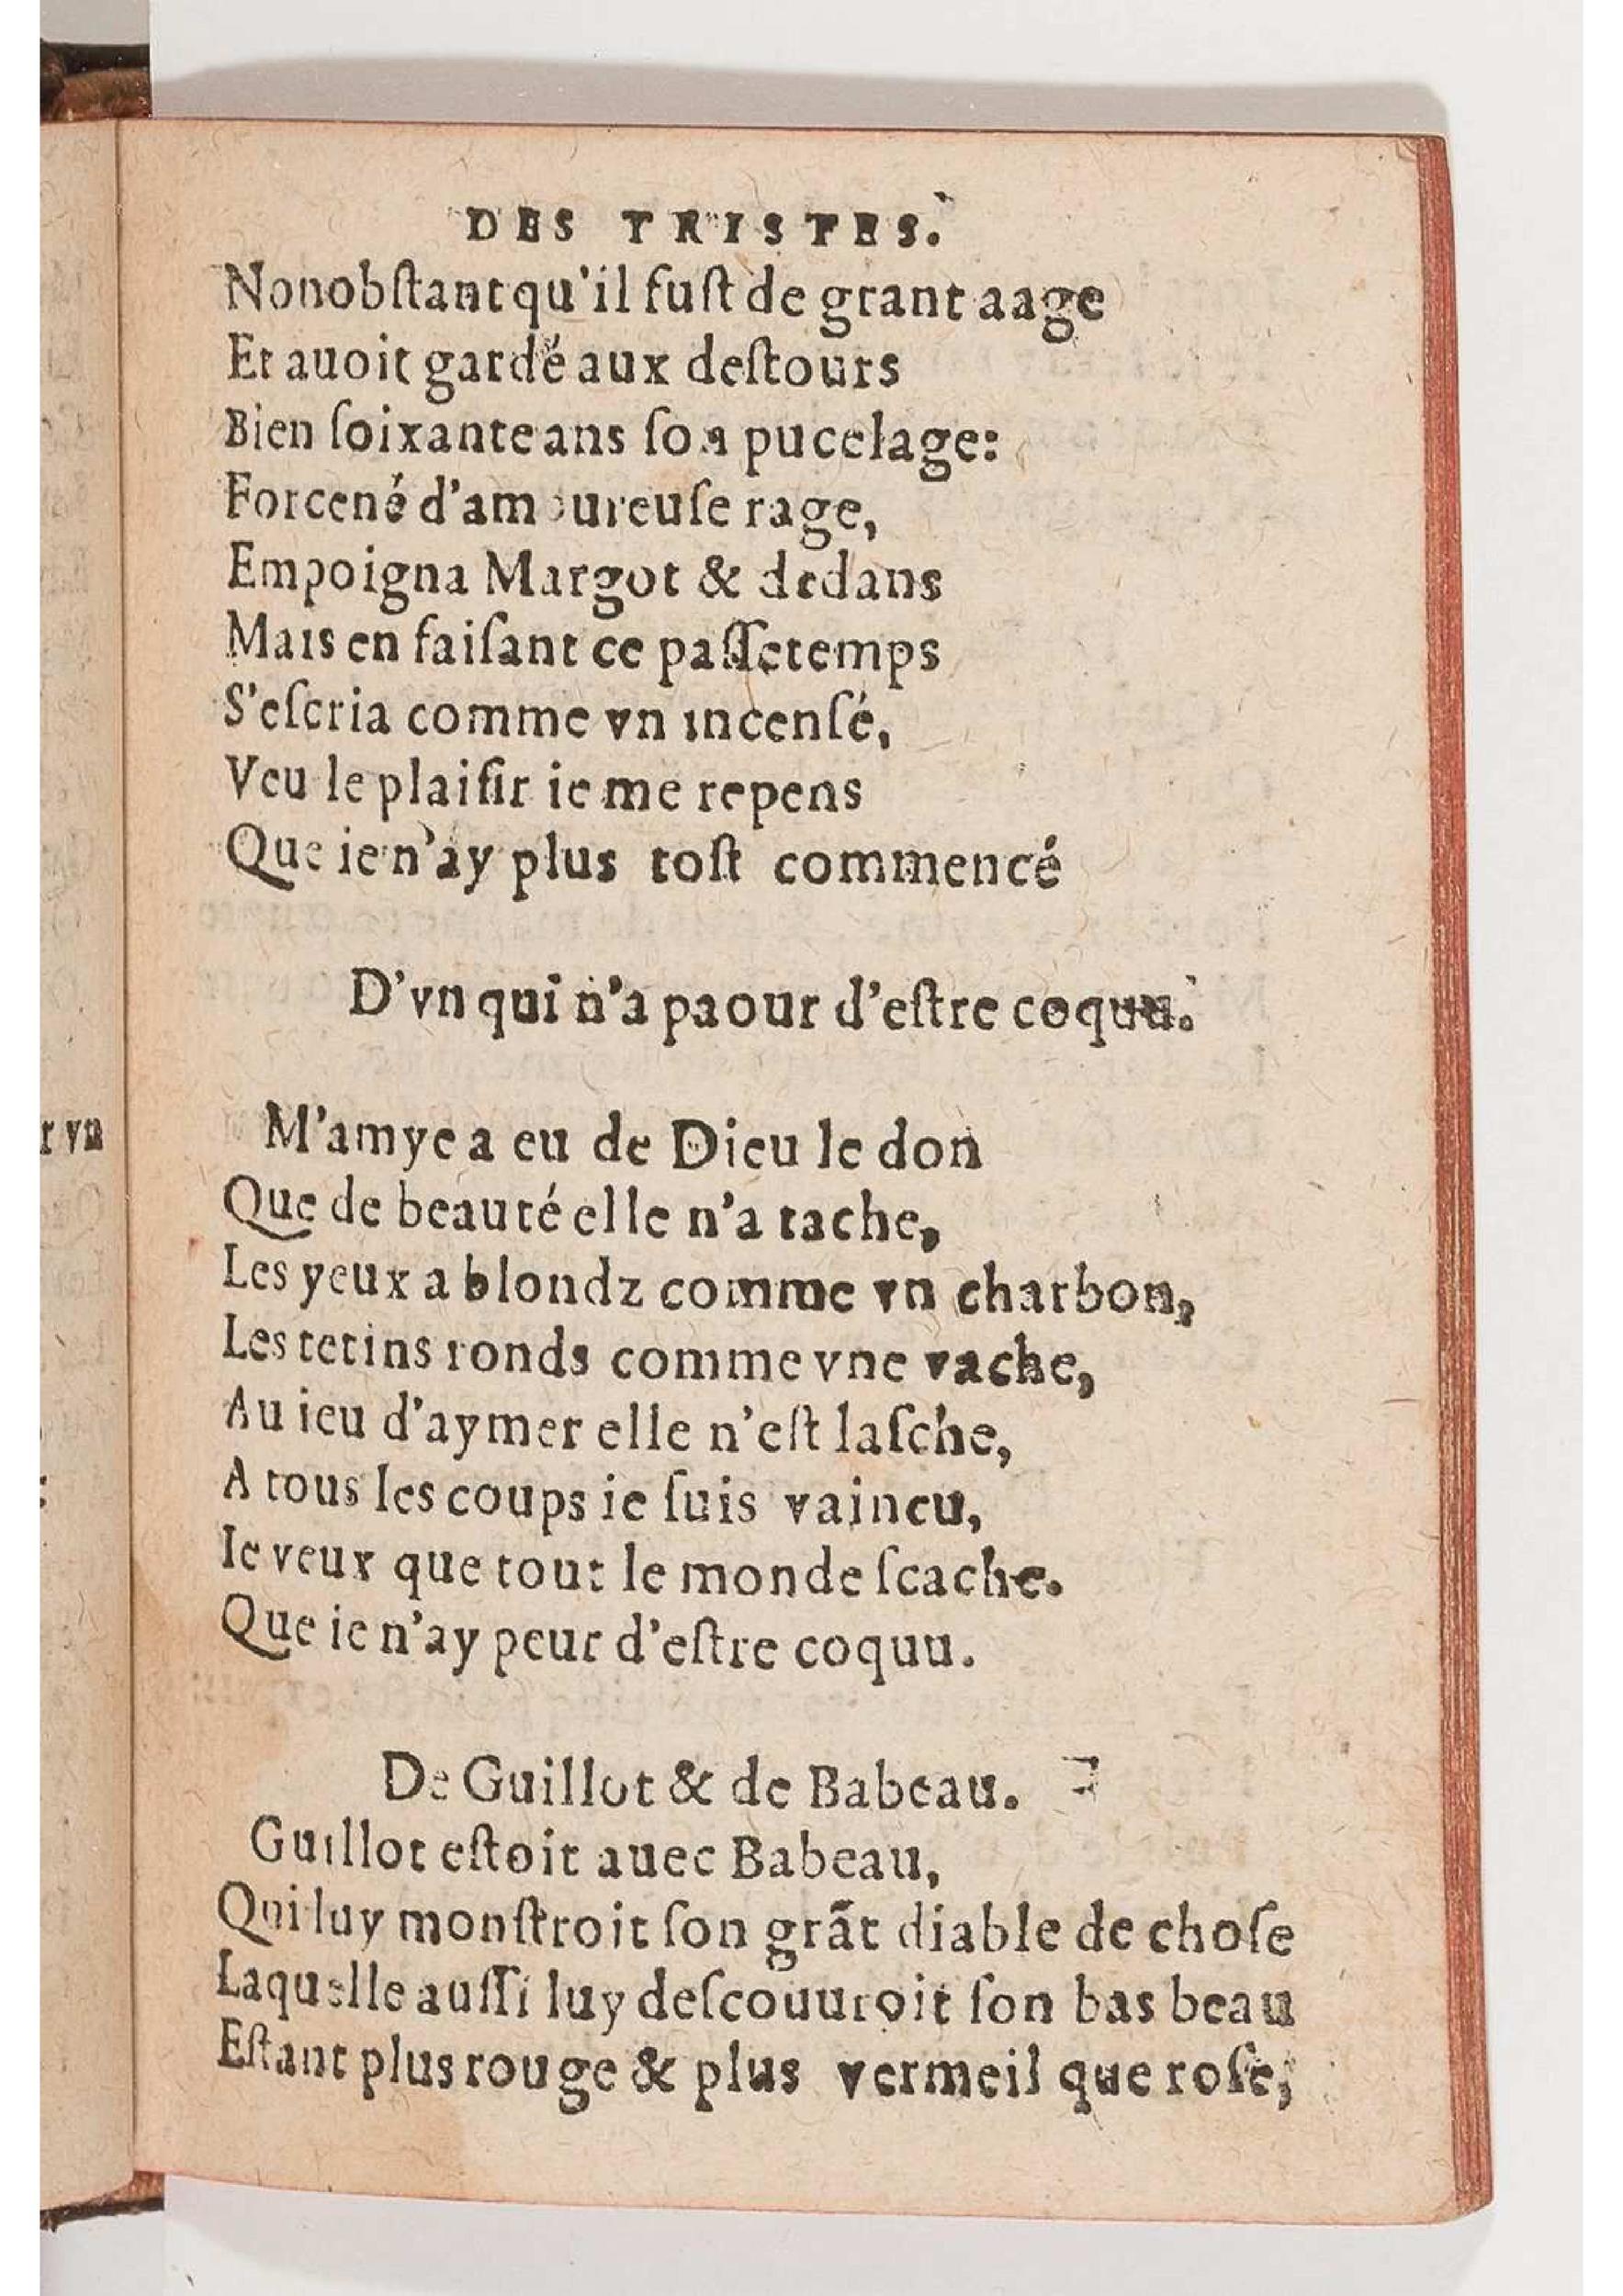 DES TRISTES.
Nonobſtant qu'il fuſt de grant aage
Et auoit gardé aux deſtours
Bien ſoixante ans ſon pucelage:
Forcené d'amoureuſe rage,
Empoigna Margot & dedans
Mais en faiſant ce paſſetemps
S'eſcria comme vn incenſé,
Veu le plaiſir ie me repens
Que ie n'ay plus toſt commencé
D'vn qui n'a paour d'eſtre coquu.
r vn
M'amye a eu de Dieu le don
Que de beauté elle n'a tache,
Les yeux a blondz comme vn charbon,
Les tetins ronds comme vne vache,
Au ieu d'aymer elle n'eſt laſche,
A tous les coups ie ſuis vaincu,
Ie veux que tout le monde ſcache.
Que ie n'ay peur d'eſtre coquu.
De Guillot & de Babeau.
Guillot eſtoit auec Babeau,
Qui luy monſtroit ſon grãt diable de choſe
Laquelle auſſi luy deſcouuroit ſon bas beau
Eſtant plus rouge & plus vermeil que roſe,